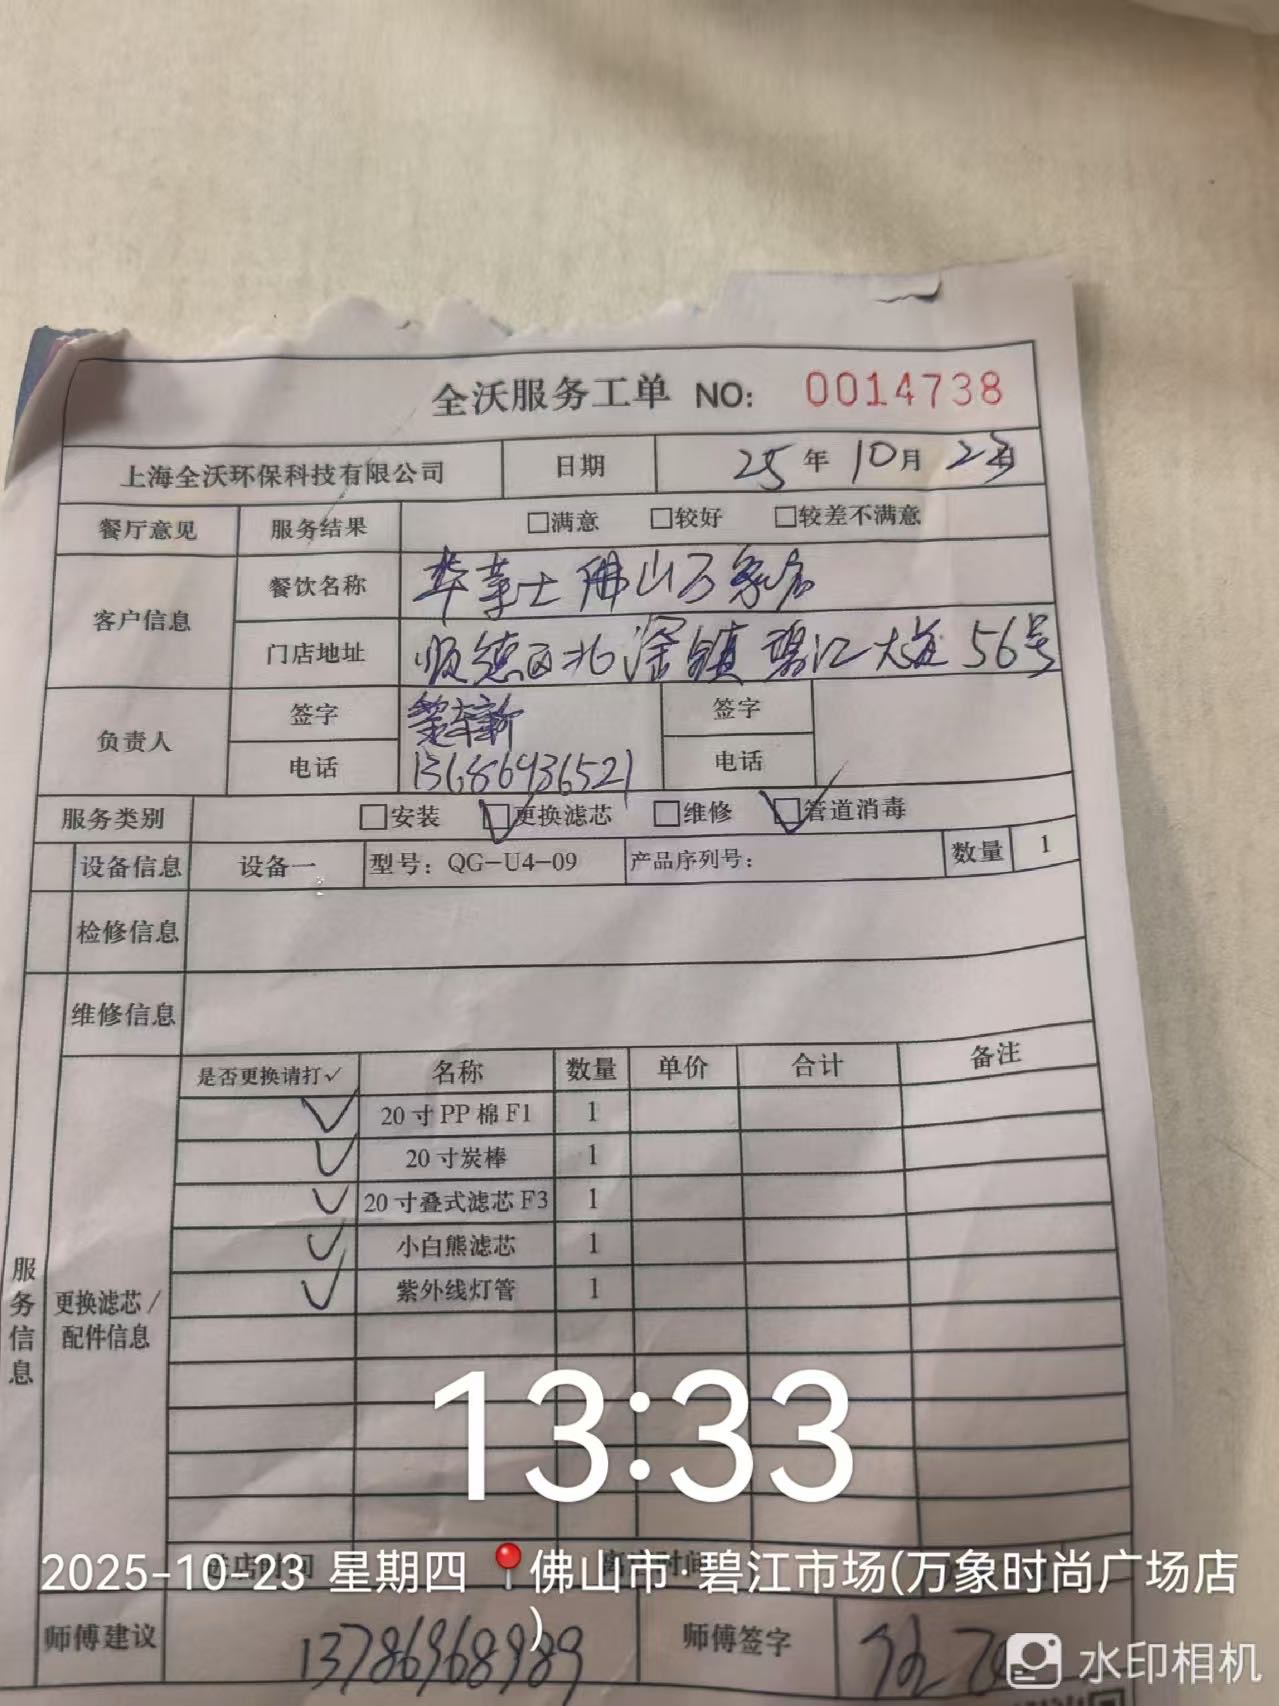 全沃服务工单 NO: 0014738
上海全沃环保科技有限公司 日期 25年10月23日
餐厅意见 服务结果 □满意 □较好 □较差不满意
客户信息 餐饮名称 华莱士佛山万象店
门店地址 顺德区北滘镇碧江大道56号
负责人 签字 签字
电话 13686936521 电话
服务类别 □安装 ☑更换滤芯 □维修 ☑管道消毒
设备信息 设备一 型号：QG-U4-09 产品序列号： 数量 1
检修信息
维修信息
服务信息
更换滤芯/配件信息
是否更换请打√ 名称 数量 单价 合计 备注
√ 20寸PP棉F1 1
√ 20寸炭棒 1
√ 20寸叠式滤芯F3 1
√ 小白熊滤芯 1
√ 紫外线灯管 1
13:33
进店时间 离店时间
2025-10-23 星期四 佛山市·碧江市场(万象时尚广场店
)
师傅建议 13786968989 师傅签字
水印相机